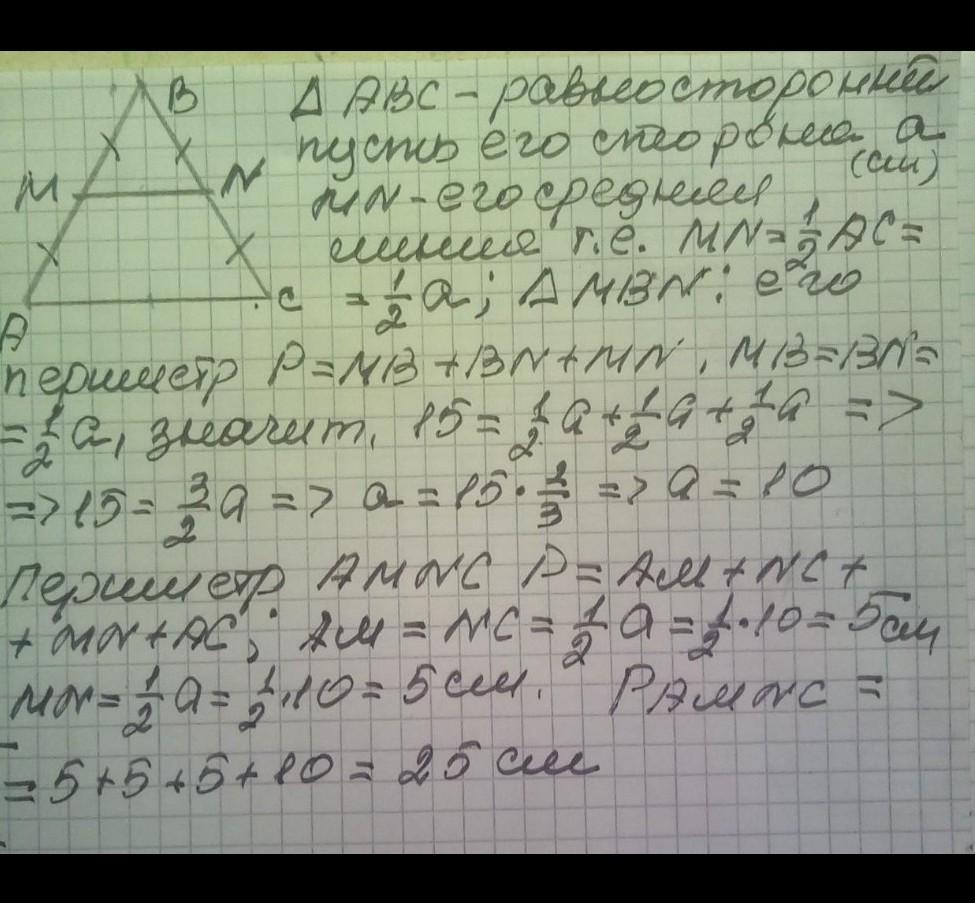 B
M
N
A
C
Δ ABC - равносторонний
пусть его сторона a
(см)
MN - его средняя
линия т.е. MN = 1/2 AC =
= 1/2 a; Δ MBN: его
периметр P = MB + BN + MN, MB = BN =
= 1/2 a, значит, 15 = 1/2 a + 1/2 a + 1/2 a =>
=> 15 = 3/2 a => a = 15 · 2/3 => a = 10
Периметр AMNC P = AM + NC +
+ MN + AC; AM = NC = 1/2 a = 1/2 · 10 = 5 см
MN = 1/2 a = 1/2 · 10 = 5 см. P AMNC =
= 5 + 5 + 5 + 10 = 25 см